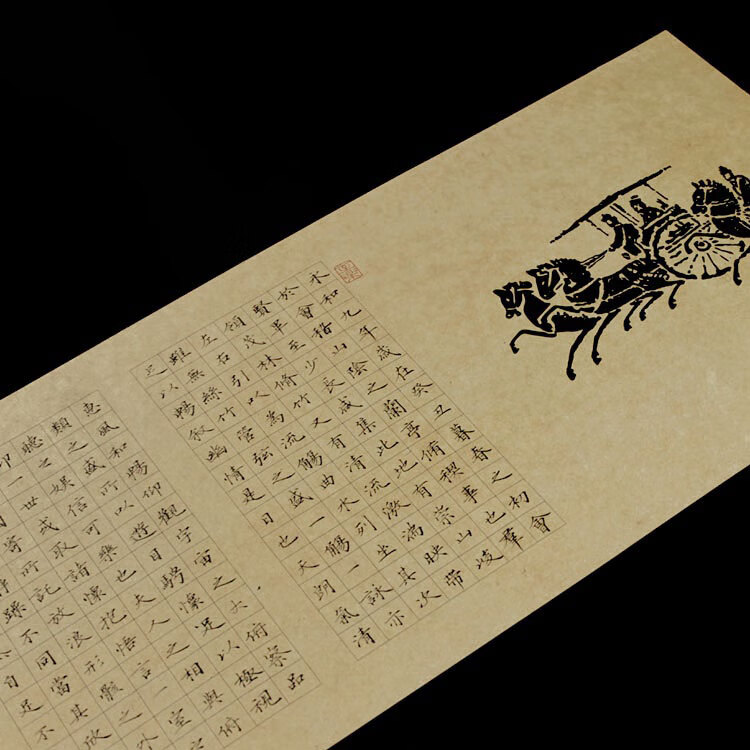 永和九年歲在癸丑暮春之初會
於會稽山陰之蘭亭脩稧事也羣
賢畢至少長咸集此地有崇山峻
領茂林脩竹又有清流激湍映帶
左右引以為流觴曲水列坐其次
雖無絲竹管弦之盛一觴一詠亦
足以暢敘幽情是日也天朗氣清
惠風和暢仰觀宇宙之大俯察品
類之盛所以遊目騁懷足以極視
聽之娛信可樂也夫人之相與俯
仰一世或取諸懷抱悟言一室之
寄所託放浪形骸之外
躁不同當其欣
自足不